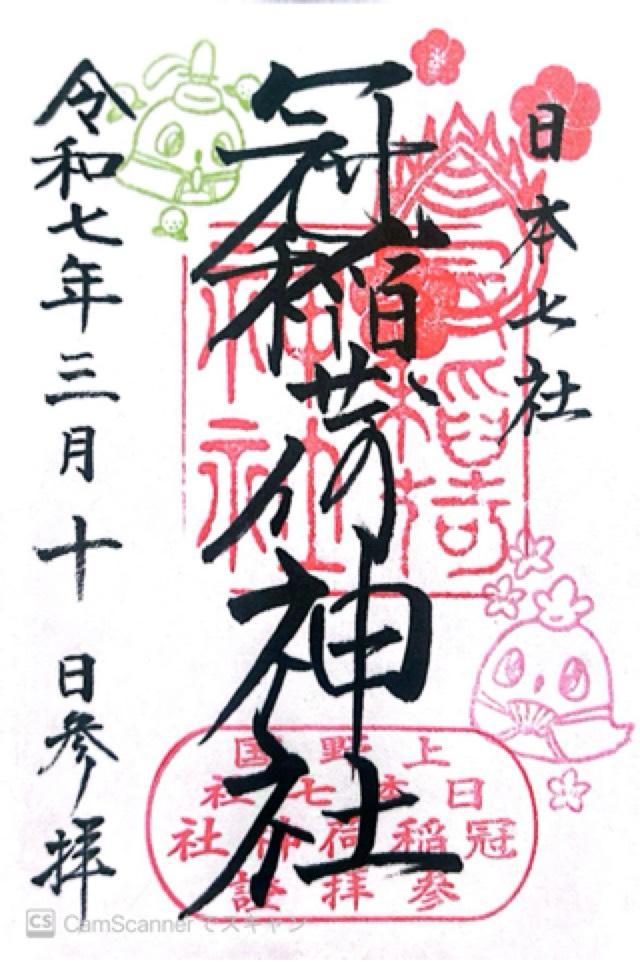 日本七社
冠稲荷神社
令和七年三月十日参拝
冠稲荷
神社
上野国
日本七社
冠稲荷神社
参拝證
CS CamScanner でスキャン